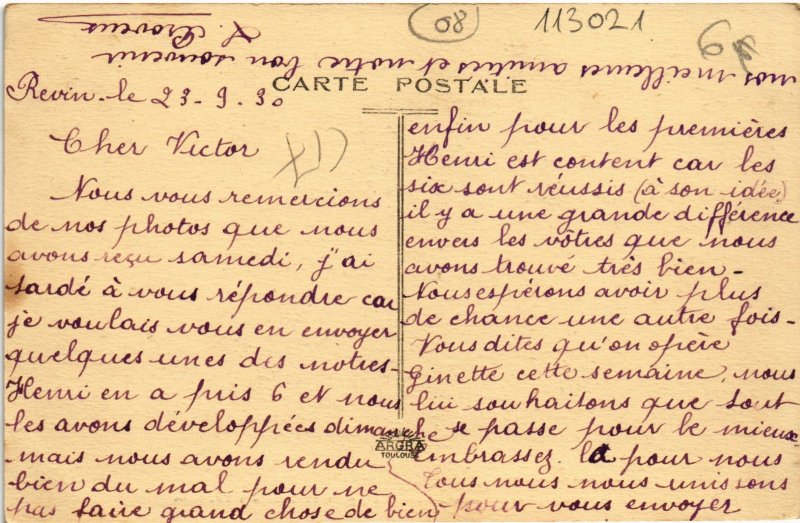 08
113021
CARTE POSTALE
Revin-le 23-9-30
Cher Victor
Nous vous remercions
de nos photos que nous
avons reçu samedi, j'ai
tardé à vous répondre car
je voulais vous en envoyer
quelques unes des notres-
Henri en a pris 6 et nous
les avons développées dimanche
mais nous avons rendu
bien du mal pour ne
pas faire grand chose de bien
enfin pour les premières
Henri est content car les
six sont réussis (à son idée)
il y a une grande différence
envers les vôtres que nous
avons trouvé très bien-
Nous espérons avoir plus
de chance une autre fois-
Vous dites qu'on opère
Ginette cette semaine, nous
lui souhaitons que tout
se passe pour le mieux
embrassez la pour nous
Tous nous nous unissons
pour vous envoyer
nos meilleures amitiés et notre bon souvenir
ARGRA
TOULOUSE